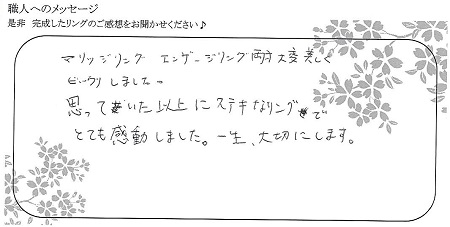 職人へのメッセージ
是非 完成したリングのご感想をお聞かせください♪
マリッジリング エンゲージリング両方大変美しく
ビックリしました。
思っていた以上にステキなリングで
とても感動しました。一生、大切にします。